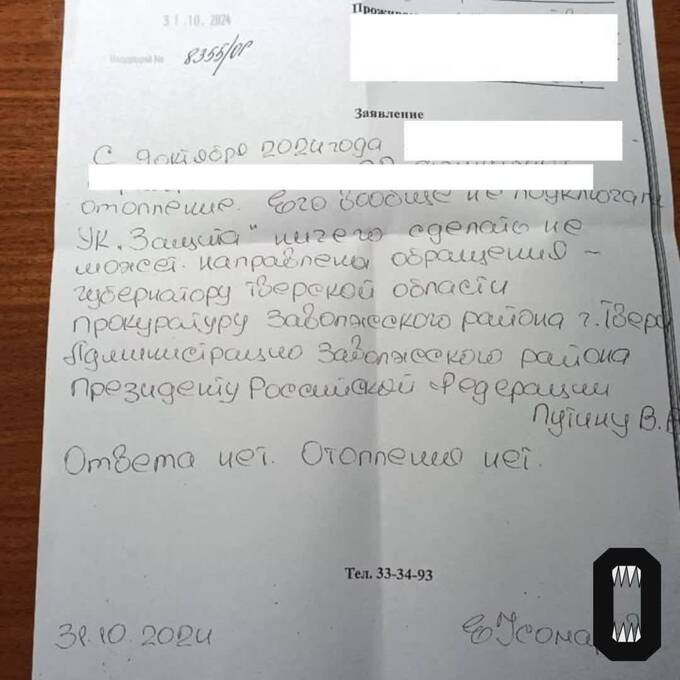 31.10.2024
Входящий № 8355/ОР
Заявление
С 9 октября 2024 года
отопление. Его вообще не подключали
УК "Защита" ничего сделать не
может. направлены обращения -
губернатору Тверской области
прокуратуру Заволжского района г. Твери
Администрацию Заволжского района
Президенту Российской Федерации
Путину В.
Ответа нет. Отопления нет.
Тел. 33-34-93
31.10.2024